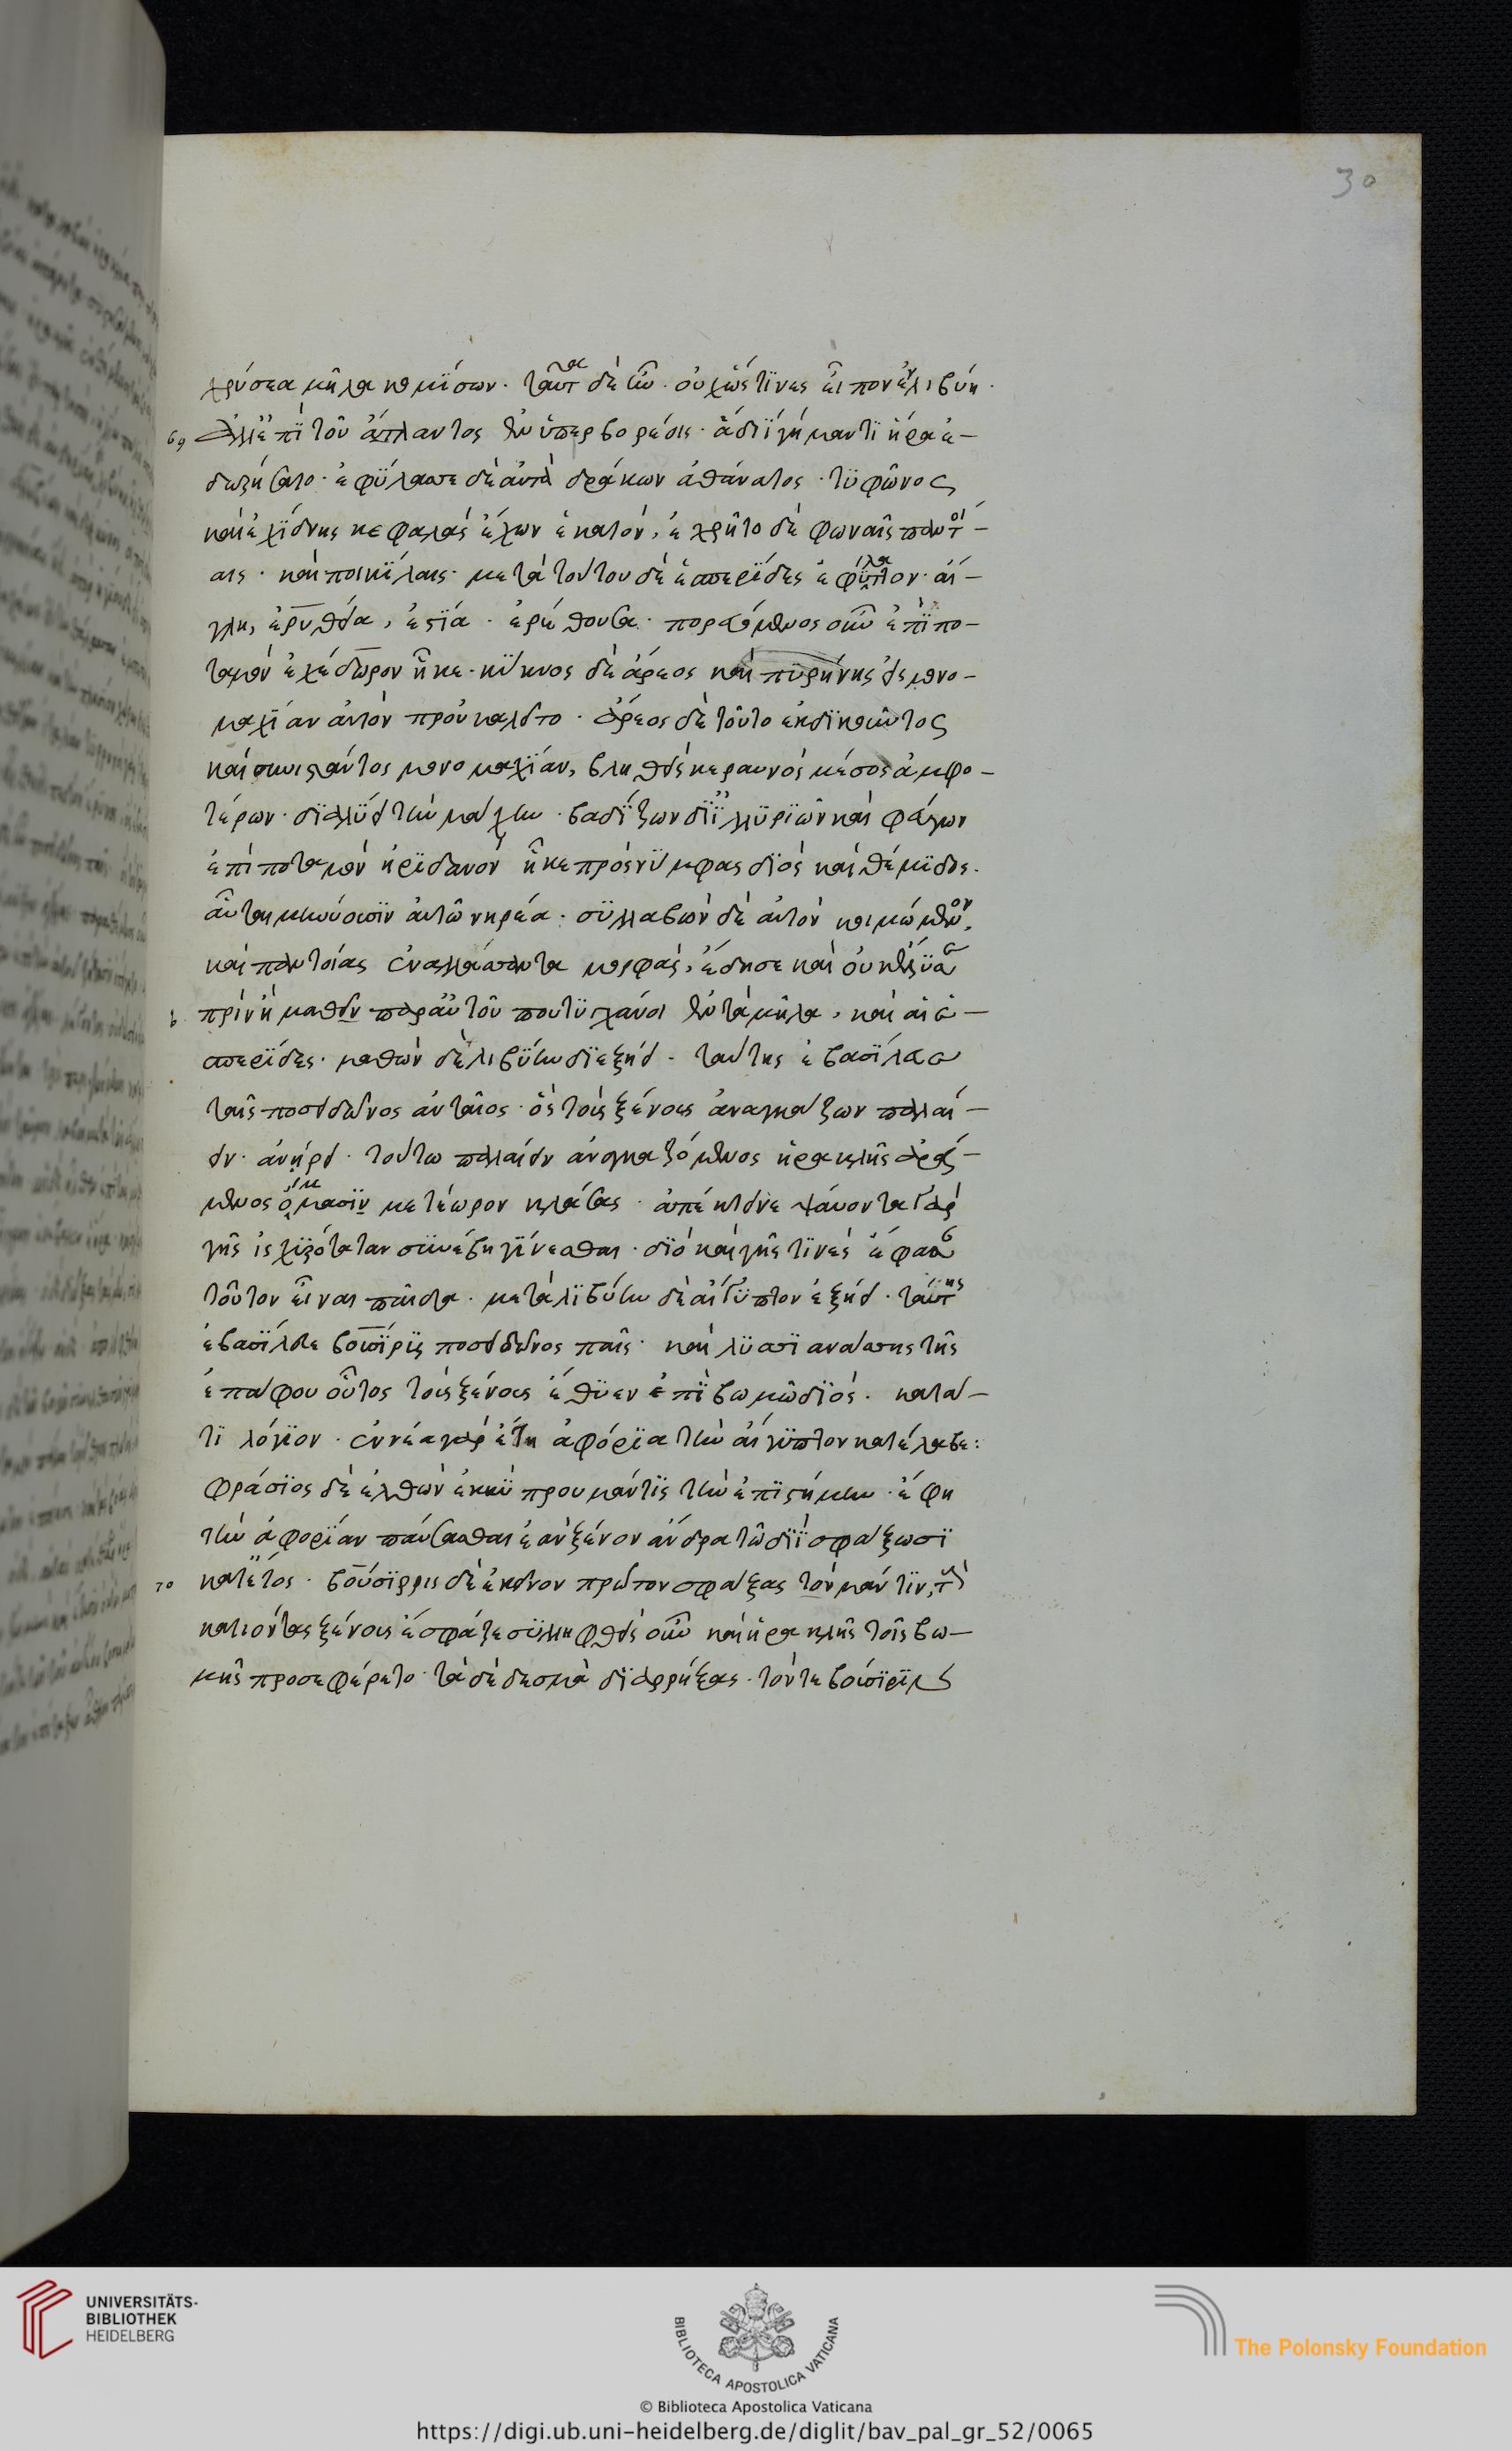 30
χρύσεα μῆλα κομίσων. ταῦτα δὲ ἦν. οὐχ ὥς τινες εἶπον ἐν λιβύη.
69 ἀλλ' ἐπὶ τοῦ ἄτλαντος ἐν ὑπερβορέοις. ἃ διῒ γήμαντι ἥρα ἐ-
δωρήσατο. ἐφύλασσε δὲ αὐτὰ δράκων ἀθάνατος. τυφῶνος
καὶ ἐχίδνης κεφαλὰς ἔχων ἑκατόν, ἐχρῆτο δὲ φωναῖς παντοί-
αις. καὶ ποικίλαις. μετὰ τούτου δὲ ἑσπερίδες ἐφύλαττον. αἴ-
γλη, ἐρυθεία, ἑστία. ἐρέθουσα. πορευόμενος οὖν ἐπὶ πο-
ταμὸν ἐχέδωρον ἧκε. κύκνος δὲ ἄρεος καὶ πυρήνης εἰς μονο-
μαχίαν αὐτὸν προὐκαλεῖτο. ἄρεος δὲ τοῦτο ἐκδικοῦντος
καὶ συνιστάντος μονομαχίαν, βληθεὶς κεραυνὸς μέσος ἀμφο-
τέρων. διαλύει τὴν μάχην. βαδίζων δι' ἰλλυριῶν καὶ φάγων
ἐπὶ ποταμὸν ἠριδανὸν ἧκε πρὸς νύμφας διὸς καὶ θέμιδος.
αὗται μηνύουσιν αὐτῷ νηρέα. συλλαβὼν δὲ αὐτὸν κοιμώμενον,
καὶ παντοίας ἐναλλάσσοντα μορφάς, ἔδησε καὶ οὐκ ἔλυσε
πρὶν ἢ μαθεῖν παρ' αὐτοῦ ποῦ τυγχάνοιεν τὰ μῆλα, καὶ αἱ ἑ-
σπερίδες. μαθὼν δὲ λιβύην διεξῄει. ταύτης ἐβασίλευε
παῖς ποσειδῶνος ἀνταῖος. ὃς τοὺς ξένους ἀναγκάζων παλαί-
ειν. ἀνῄρει. τούτω παλαίειν ἀναγκαζόμενος ἡρακλῆς ἀρά-
μενος ἅμμασιν μετέωρον κλάσας. ἀπέκτεινε ψαύοντα γὰρ
γῆς ἰσχυρότατον συνέβη γίνεσθαι. διὸ καὶ γῆς τινὲς ἔφασαν
τοῦτον εἶναι παῖδα. μετὰ λιβύην δὲ αἴγυπτον ἐξῄει. ταύτης
ἐβασίλευε βούσιρις ποσειδῶνος παῖς. καὶ λυσιανάσσης τῆς
ἐπάφου οὗτος τοὺς ξένους ἔθυεν ἐπὶ βωμῷ διός. κατά-
τι λόγιον. ἐννέα γὰρ ἔτη ἀφορία τὴν αἴγυπτον κατέλαβε:
φράσιος δὲ ἐλθὼν ἐκ κύπρου μάντις τὴν ἐπιστήμην. ἔφη
τὴν ἀφορίαν παύσασθαι ἐὰν ξένον ἄνδρα τῷ διῒ σφάξωσι
70 κατ' ἔτος. βούσιρρις δὲ ἐκεῖνον πρῶτον σφάξας τὸν μάντιν, τοὺς
κατιόντας ξένους ἔσφαζε συλληφθεὶς οὖν καὶ ἡρακλῆς τοῖς βω-
μοῖς προσεφέρετο. τὰ δὲ δεσμὰ διαρρήξας. τόν τε βούσιριν
UNIVERSITÄTS-
BIBLIOTHEK
HEIDELBERG
BIBLIOTECA APOSTOLICA VATICANA
The Polonsky Foundation
© Biblioteca Apostolica Vaticana
https://digi.ub.uni-heidelberg.de/diglit/bav_pal_gr_52/0065